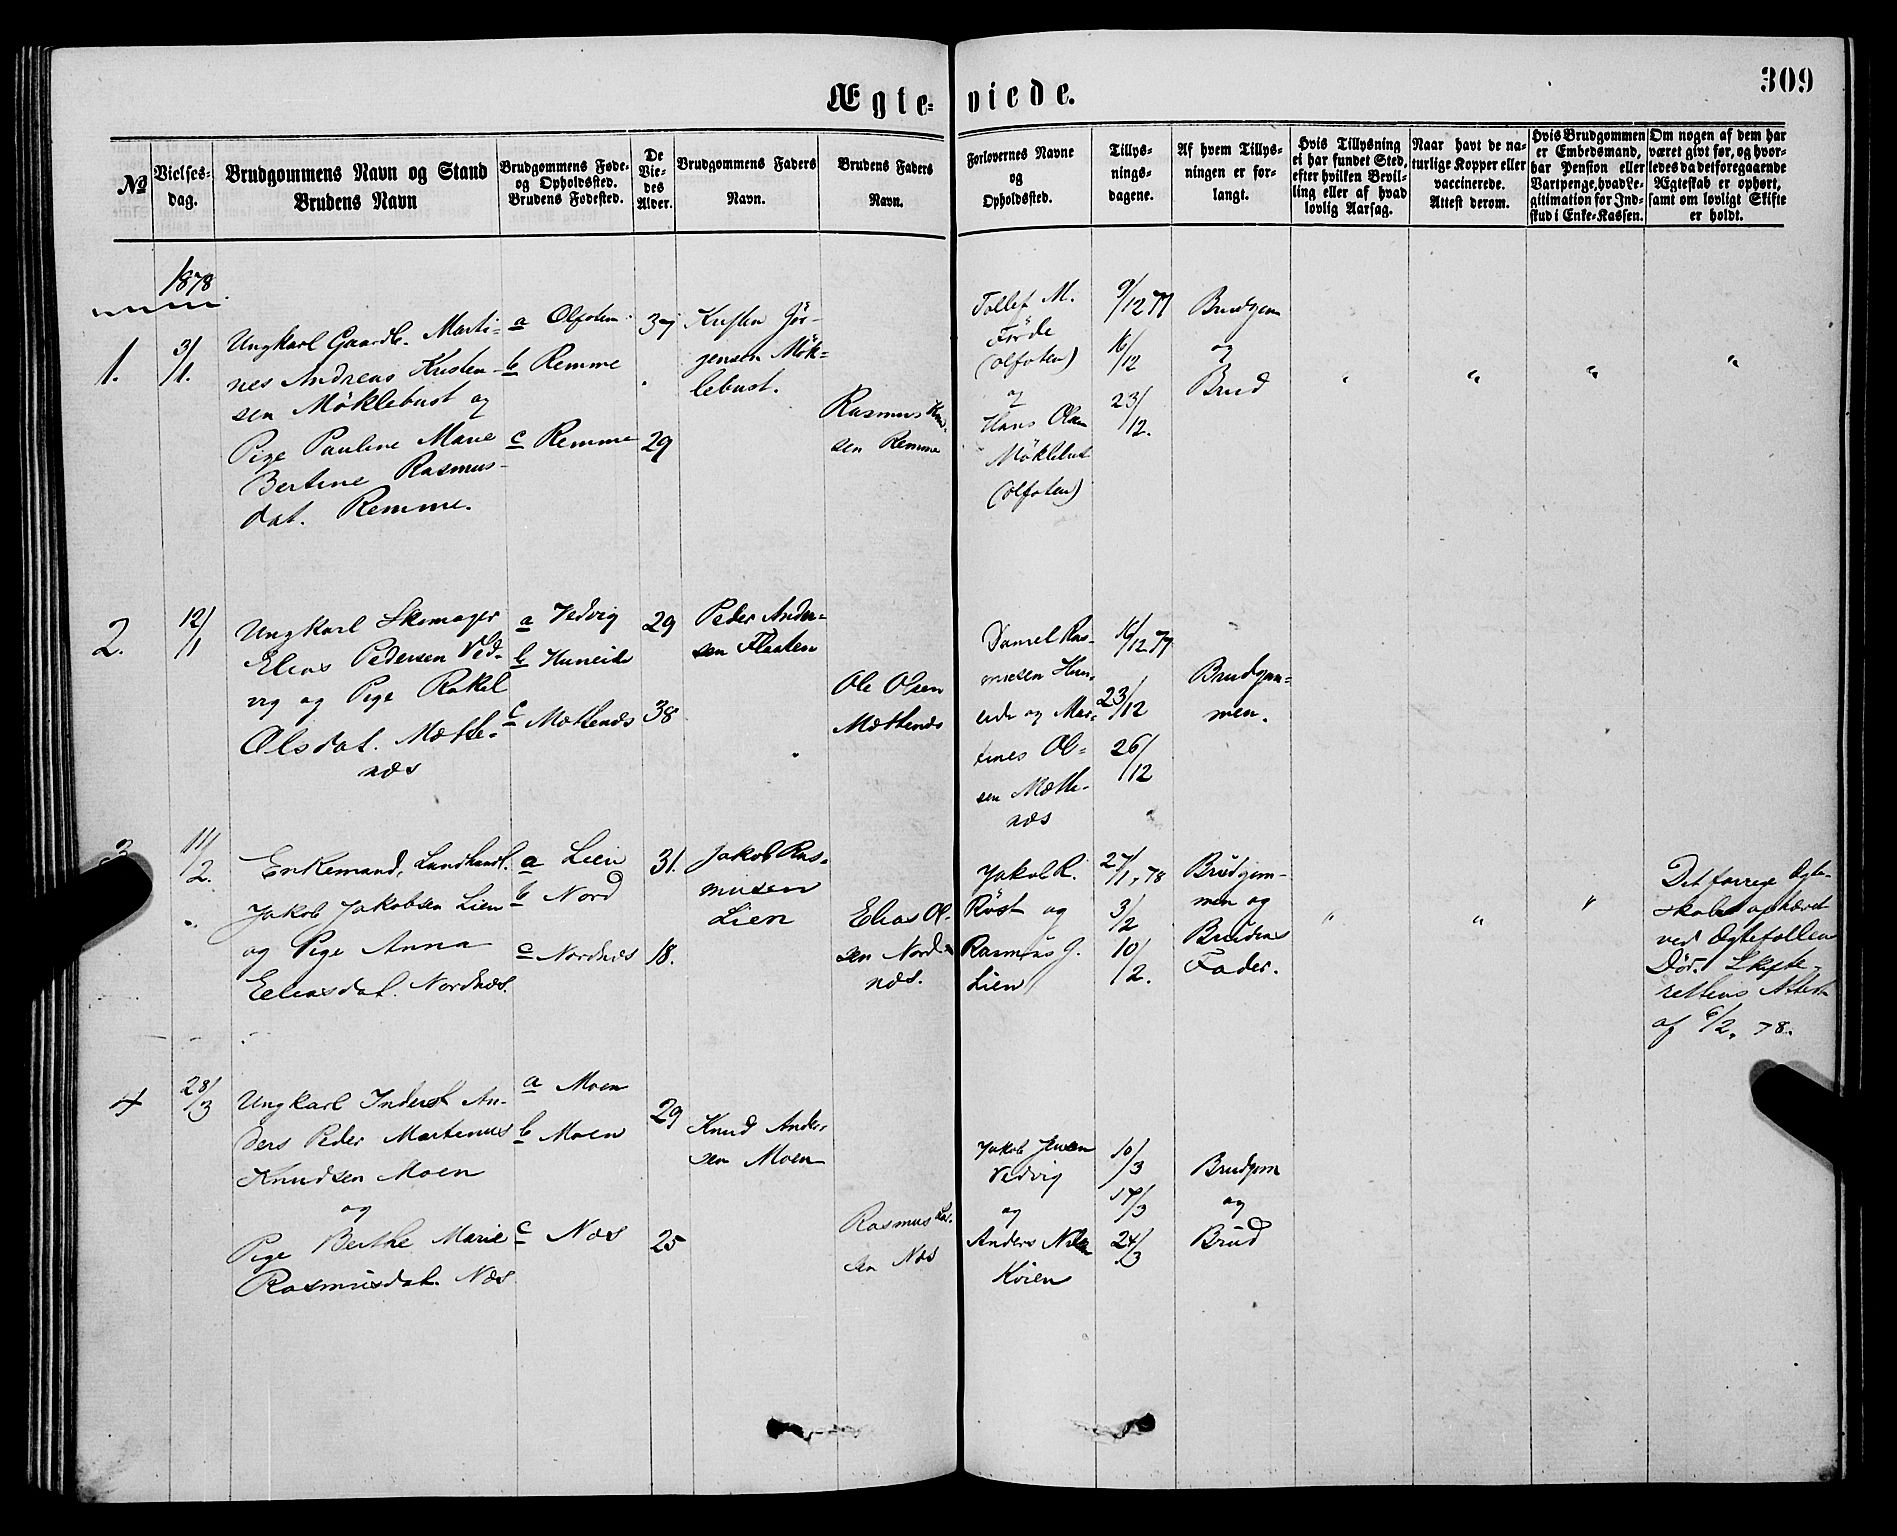 Ægte-viede.
309
No
Vielses-
dag.
Brudgommens Navn og Stand
Brudens Navn
Brudgommens Føde-
og Opholdssted.
Brudens Fødested.
De
Vie-
des
Alder.
Brudgommens Faders
Navn.
Brudens Faders
Navn.
Forlovernes Navne
og
Opholdssted.
Tillys-
nings-
dagene.
Af hvem Tillys-
ningen er for-
langt.
Hvis Tillysning
ei har fundet Sted,
efter hvilken Bevil-
ling eller af hvad
lovlig Aarsag.
Naar havt de na-
turlige Kopper eller
vaccinerede.
Attest derom.
Hvis Brudgommen
er Embedsmand,
har Pension eller
Vartpenge, hvad Le-
gitimation for Ind-
skud i Enke-Kassen.
Om nogen af dem har
været givt før, og hvor-
ledes da det foregaaende
Ægteskab er ophørt,
samt om lovligt Skifte
er holdt.
1878.
1.
3/1.
Ungkarl Gaardb. Marti-
nes Andreas Kristen-
sen Möklebust og
Pige Pauline Marie
Bertine Rasmus-
dat. Remme.
a Olfoten
b Remme
c Remme
37
29
Kristen Jör-
gensen Mök-
lebust.
Rasmus
sen Remme
Tollef M.
Förde
(Olfoten)
og
Hans Olsen
Möklebust
(Olfoten)
9/12 77
16/12
23/12.
Brudgom
og
Brud
" " " "
2.
12/1
Ungkarl Skomager
Elias Pedersen Ved-
vig og Pige Rakel
Olsdat. Mæthe-
næs
a Vedvig
b Huneide
c Mæthenæs
29
38
Peder Ander-
sen Flaaten
Ole Olsen
Mæthenæs
Daniel Ras-
musen Hun-
eide og Mar-
tines Ol-
sen Mæthe-
næs
16/12 77
23/12
26/12
Brudgom-
men.
3
11/2.
Enkemand, Landhandl.
Jakob Jakobsen Lien
og Pige Anna
Eliasdat. Nordnæs.
a Lien
b Nord
c Nordnæs
31.
18.
Jakob Ras-
musen
Lien
Elias Ol-
sen Nord-
næs.
Jakob R.
Röst og
Rasmus J.
Lien
27/1, 78
3/2
10/2.
Brudgom-
men og
Brudens
Fader.
" " "
Det forrige Ægte-
skab ophævet
ved Ægtefællens
Död. Skifte-
rettens Attest
af 6/2, 78.
4
28/3
Ungkarl Inderst An-
ders Peder Martinus
Knudsen Moen
og
Pige Berthe Marie
Rasmusdat. Næs
a Moen
b Moen
c Næs
29
25
Knud Ander-
sen Moen
Rasmus
sen Næs
Jakob Jensen
Vedvig
og
Anders
Köien
10/3
17/3
24/3
Brudgom
og
Brud